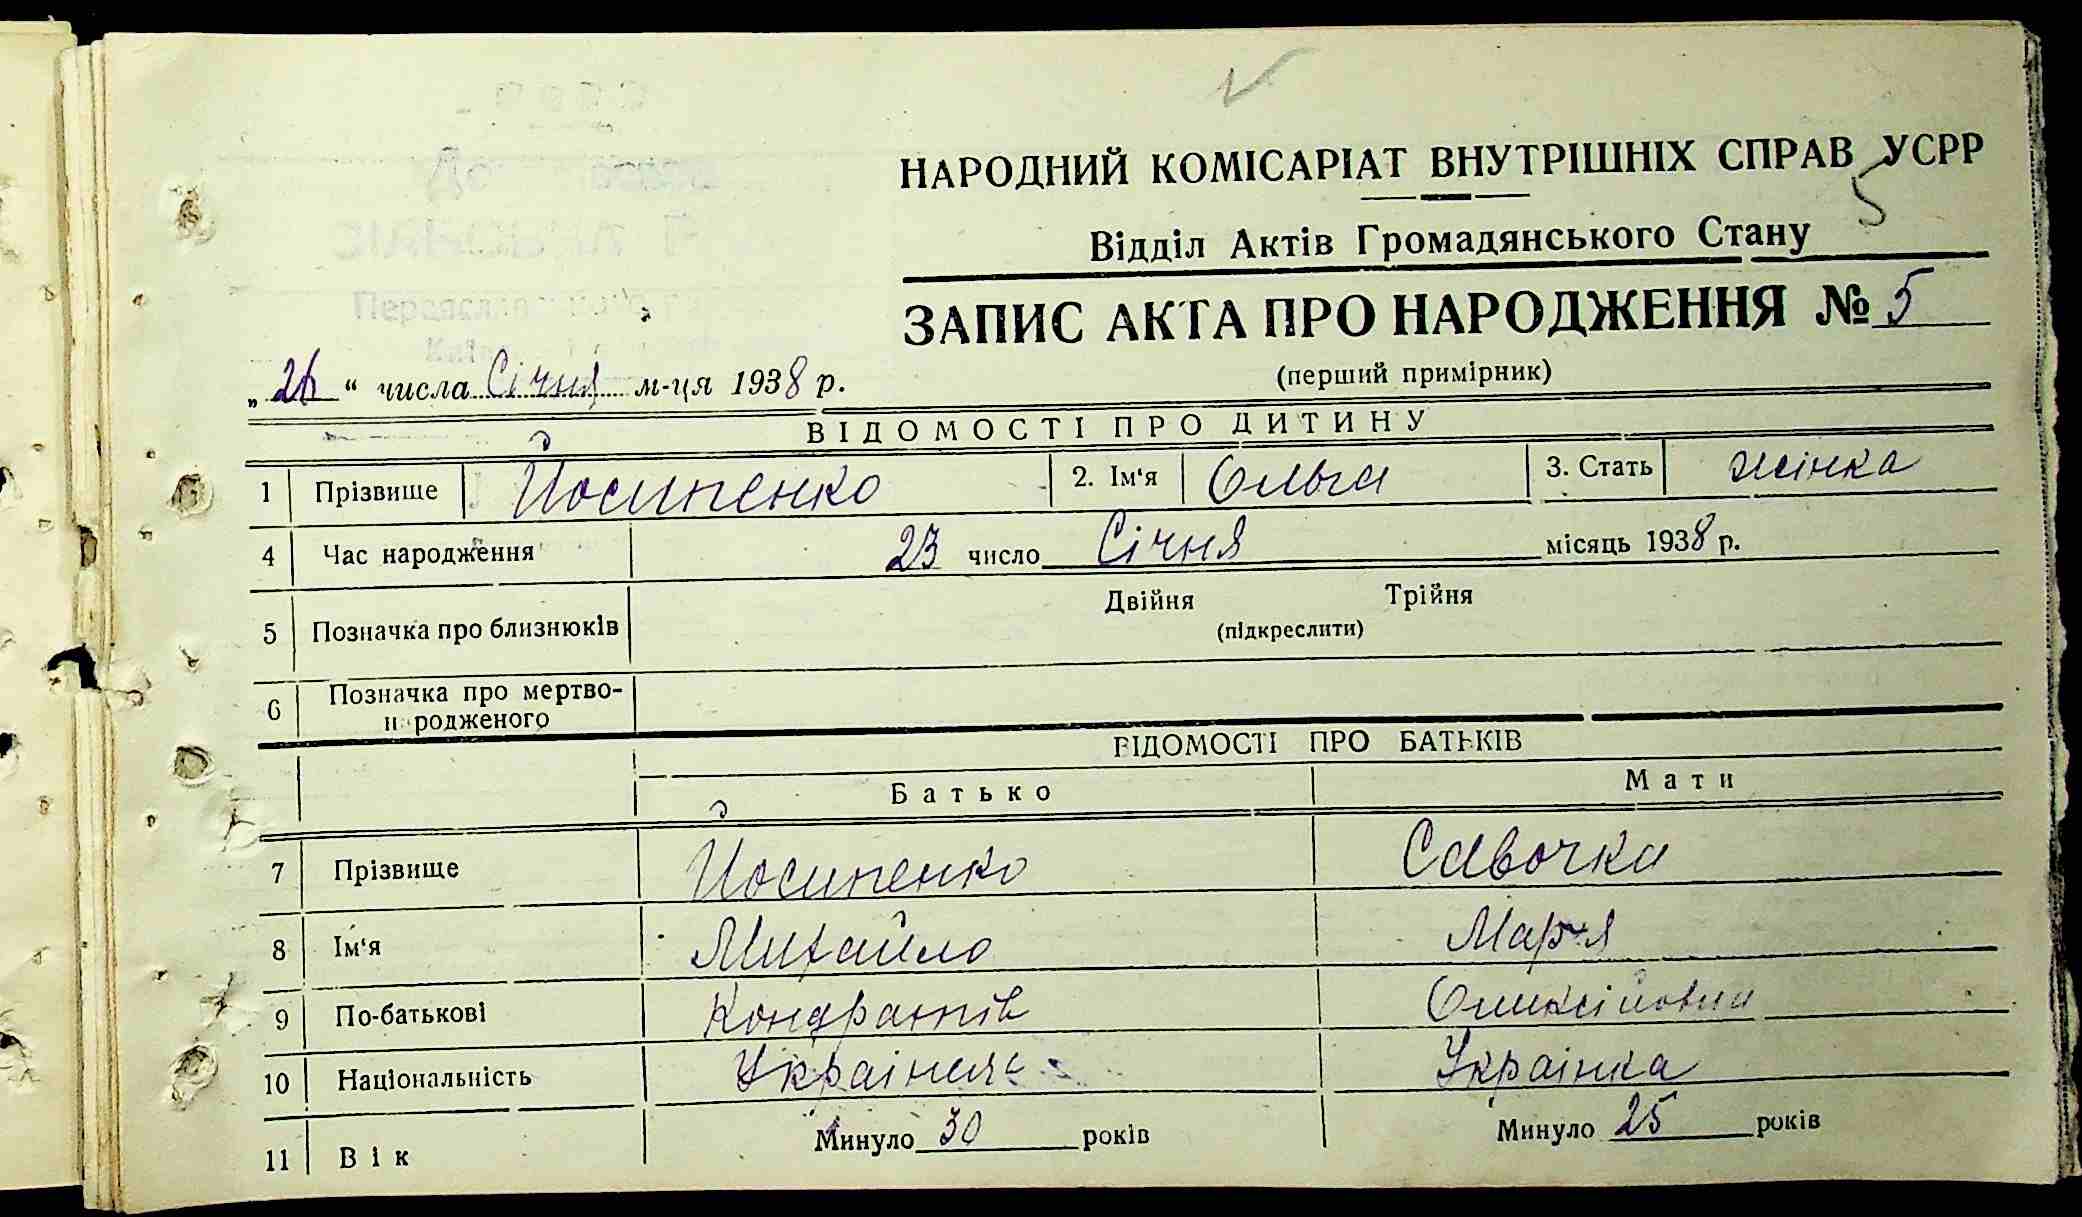 НАРОДНИЙ КОМІСАРІАТ ВНУТРІШНІХ СПРАВ УСРР
5
Відділ Актів Громадянського Стану
ЗАПИС АКТА ПРО НАРОДЖЕННЯ № 5
(перший примірник)
„26“ числа Січня м-ця 1938 р.
ВІДОМОСТІ ПРО ДИТИНУ
1 Прізвище Йосипенко 2. Ім‘я Ольга 3. Стать жінка
4 Час народження 23 число Січня місяць 1938 р.
5 Позначка про близнюків Двійня Трійня
(підкреслити)
6 Позначка про мертво-
народженого
ВІДОМОСТІ ПРО БАТЬКІВ
Батько Мати
7 Прізвище Йосипенко Савочка
8 Ім‘я Михайло Мар‘я
9 По-батькові Кондратів Оликсійовна
10 Національність Украінець Украінка
11 Вік Минуло 30 років Минуло 25 років